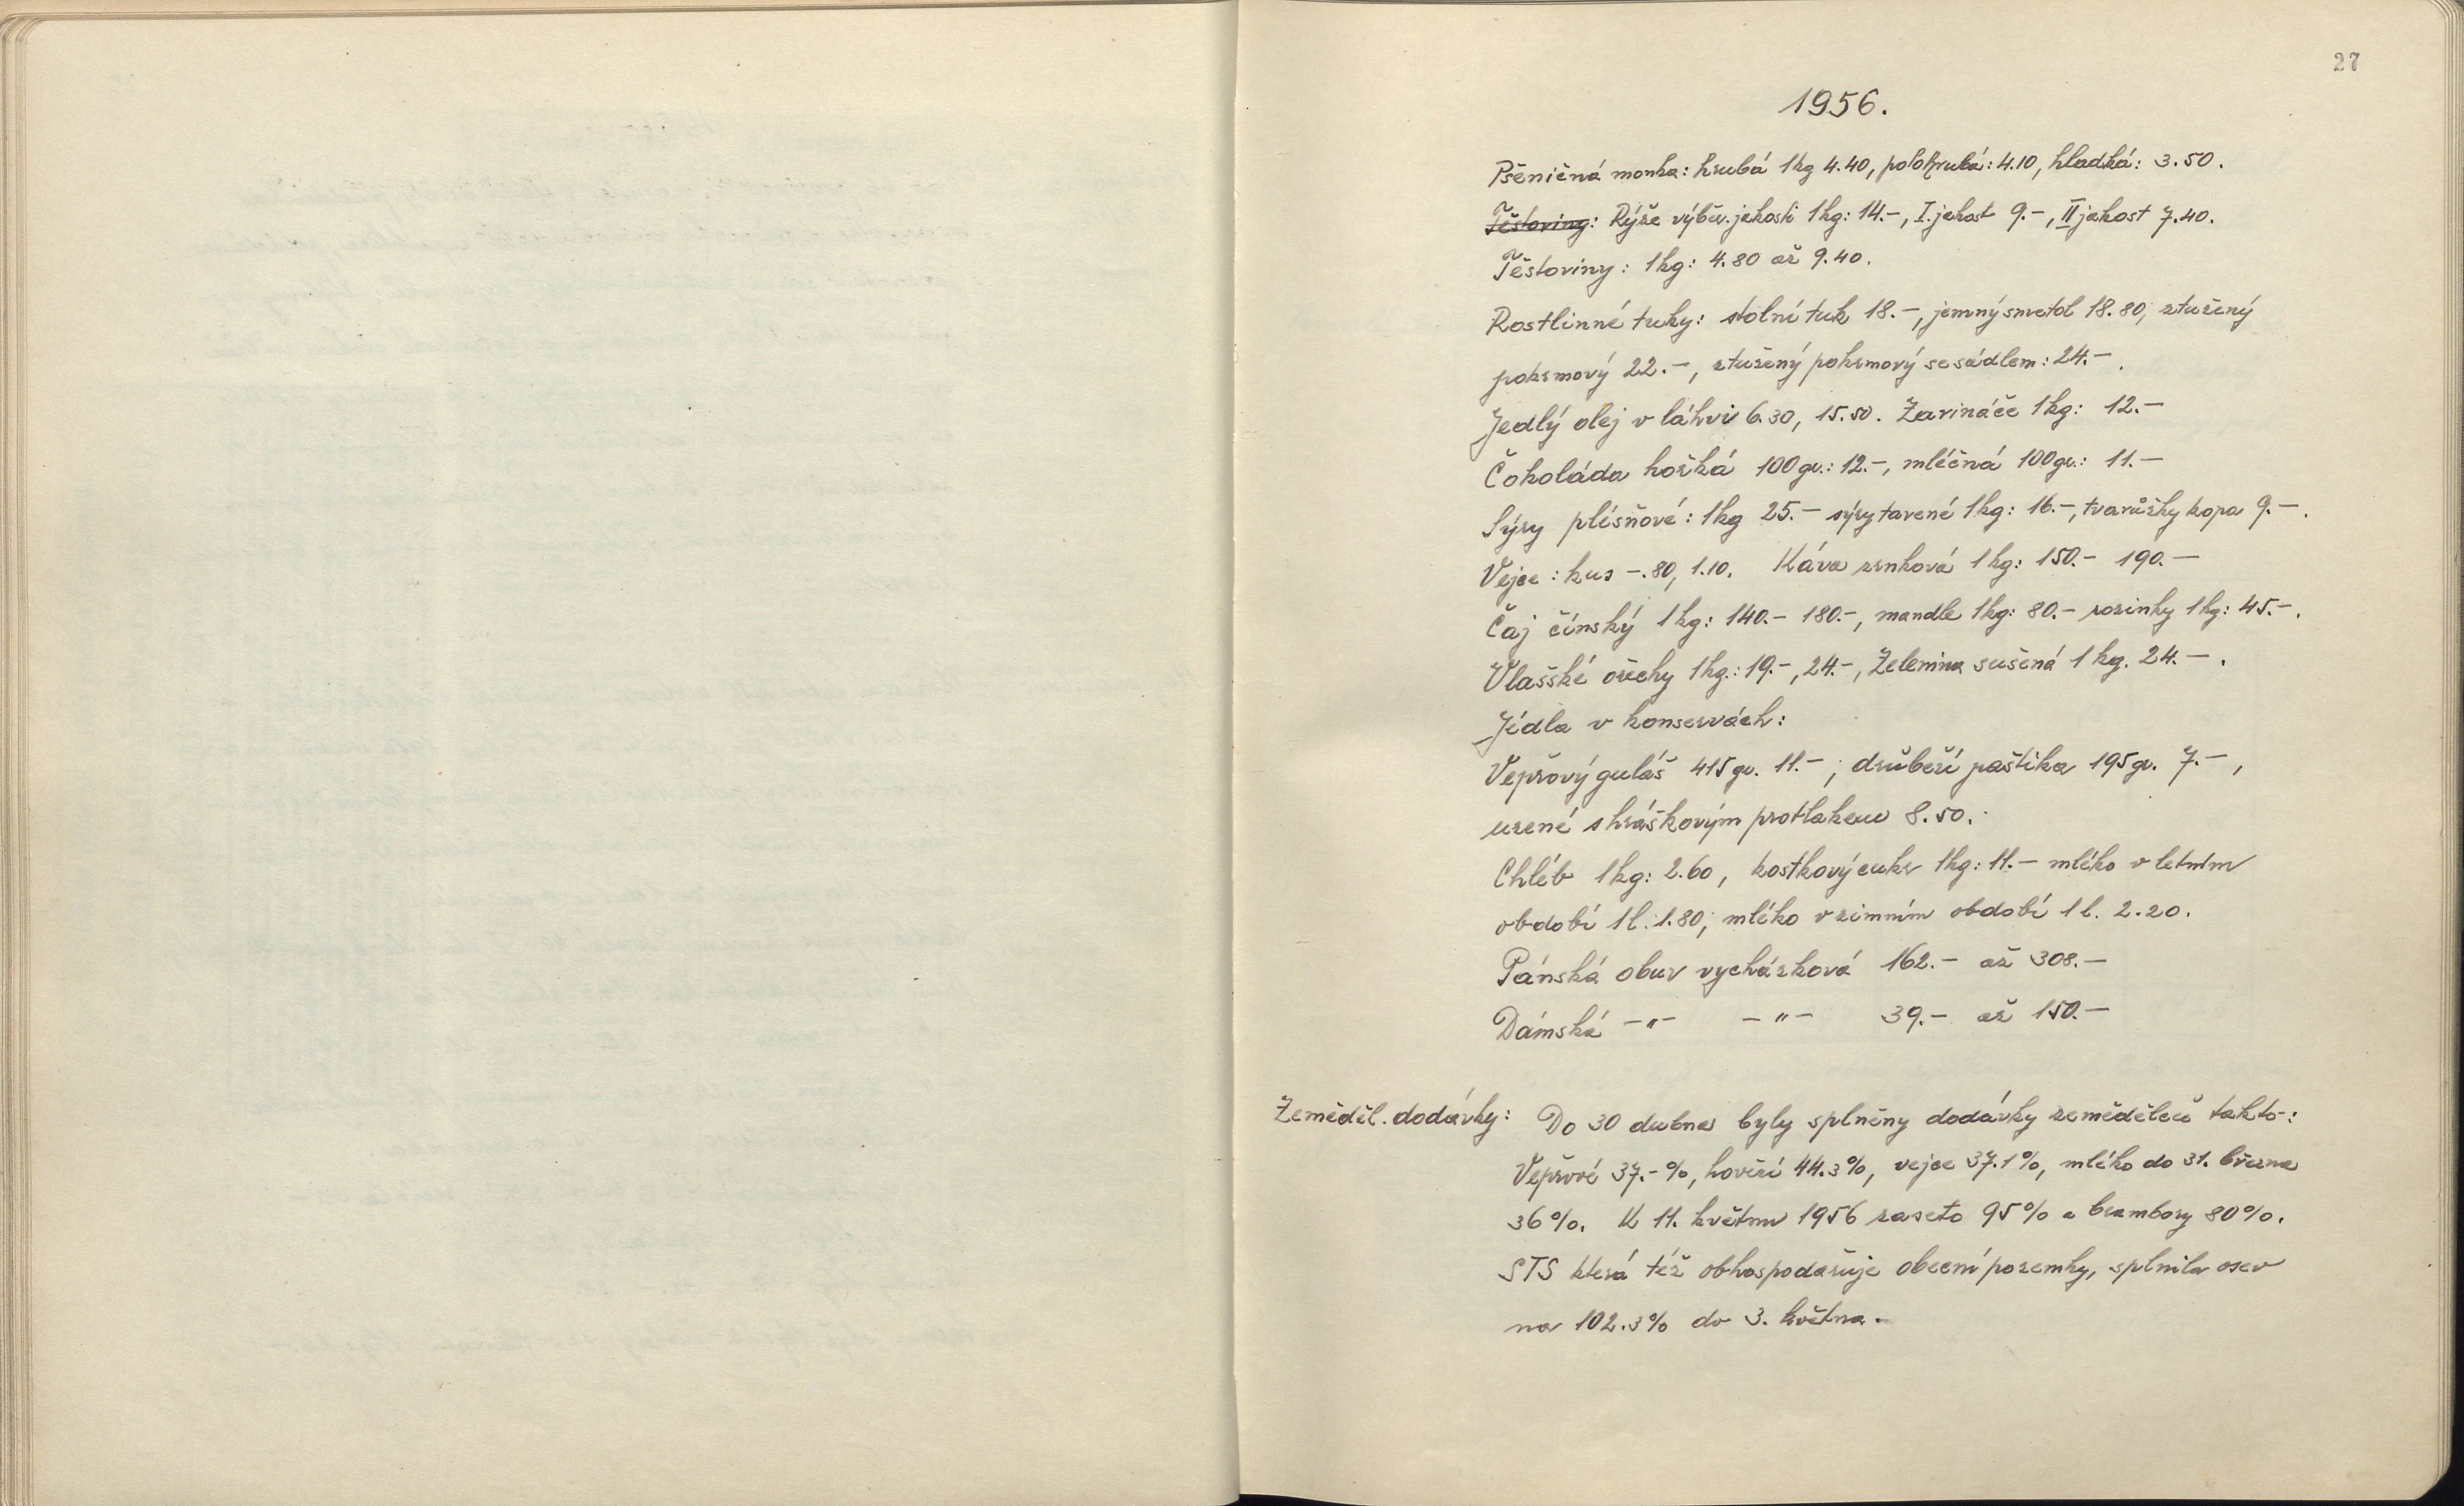 27
1956.
Pšeničná mouka: hrubá 1kg 4.40, polohrubá: 4.10, hladká: 3.50.
Těstoviny: Rýže výběr. jakosti 1kg: 14.-, I. jakost 9.-, II jakost 7.40.
Těstoviny: 1kg: 4.80 až 9.40.
Rostlinné tuky: stolní tuk 18.-, jemný smetol 18.80, ztužený
pokrmový 22.-, ztužený pokrmový se sádlem: 24.-.
Jedlý olej v láhvi 6.30, 15.50. Zavináče 1kg: 12.-
Čokoláda hořká 100gr.: 12.-, mléčná 100gr.: 11.-
Sýry plísňové: 1kg 25.- sýry tavené 1kg: 16.-, tvarůžky kopa 9.-.
Vejce: kus -.80, 1.10. Káva zrnková 1kg: 150.- 190.-
Čaj čínský 1kg: 140.- 180.-, mandle 1kg: 80.- rozinky 1kg: 45.-.
Vlašské ořechy 1kg.: 19.-, 24.-, Zelenina sušená 1kg. 24.-.
Jídla v konservách:
Vepřový guláš 415gr. 11.-; drůbeží paštika 195gr. 7.-,
uzené s hráškovým protlakem 8.50.
Chléb 1kg: 2.60, kostkový cukr 1kg: 11.- mléko v letním
období 1l: 1.80, mléko v zimním období 1l. 2.20.
Pánská obuv vycházková 162.- až 308.-
Dámská -"- -"- 39.- až 150.-
Zeměděl. dodávky: Do 30 dubna byly splněny dodávky zemědělců takto-:
Vepřové 37.-%, hovězí 44.3%, vejce 37.1%, mléko do 31. března
36%. K 11. květnu 1956 zaseto 95% a brambory 80%.
STS která též obhospodařuje obecní pozemky, splnila osev
na 102.3% do 3. května.